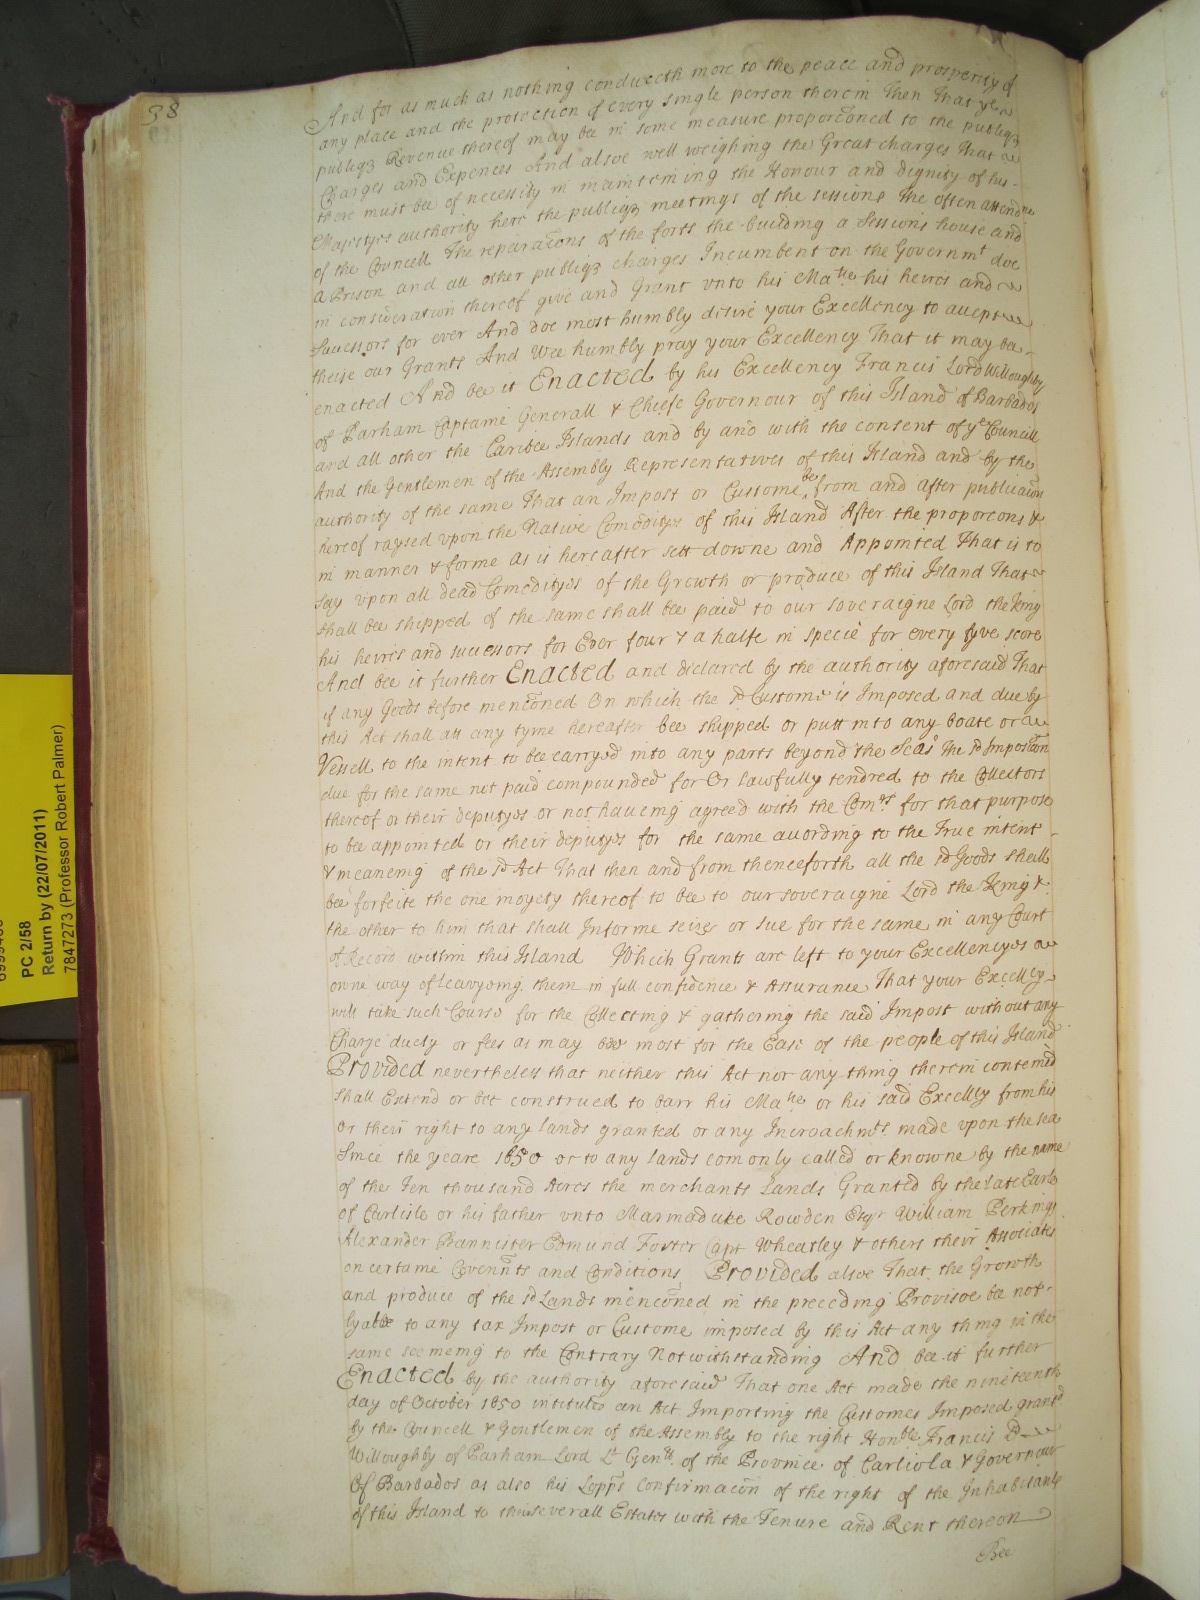 38
And for as much as nothing conduceth more to the peace and prosperity of
any place and the protection of every single person therein Then That ye
publiq3 Revenue thereof may bee in some measure proportioned to the publiq3
Charges and Expences And alsoe well weighing the Great charges That
there must bee of necessity in mainteining the Honour and dignity of his
Majestyes authority here the publiq3 meetings of the sessions The often attendnce
of the Councell The reparacons of the forts the building a Sessions house and
a Prison and all other publiq3 charges Incumbent on the Governmt doe
in consideration thereof give and Grant vnto his Matie his heires and
Successors for ever And doe most humbly desire your Excellency to accept
theise our Grants And Wee humbly pray your Excellency That it may be
enacted And bee it Enacted by his Excellency Francis Lord Willoughby
of Parham Captaine Generall & Cheife Governour of this Island of Barbados
and all other the Caribee Islands and by and with the consent of ye Councill
And the Gentlemen of the Assembly Representatives of this Island and by the
authority of the same That an Impost or Custome be from and after publicacon
hereof raysed vpon the Native Comoditys of this Island After the proporcons &
in manner & forme as is hereafter sett downe and Appointed That is to
say vpon all dead Comodityes of the Growth or produce of this Island That
shall bee shipped of the same shall bee paid to our soveraigne Lord the King
his heires and successors for Ever four & a halfe in specie for every fyve score
And bee it further Enacted and declared by the authority aforesaid That
if any Goods before mencōned On which the sd Custome is Imposed and due by
this Act shall att any tyme hereafter bee shipped or putt into any boate or
Vessell to the intent to bee carryed into any parts beyond the Seas The sd Imposicōn
due for the same not paid compounded for Or lawfully tendred to the Collectors
thereof or their deputyes or not haueing agreed with the Comrs for that purpose
to bee appointed or their deputyes for the same according to the True intent
& meaneing of the sd Act That then and from thenceforth all the sd Goods shall
bee forfeite the one moyety thereof to bee to our soveraigne Lord the King &
the other to him that shall Informe seize or sue for the same in any Court
of Record within this Island Which Grants are left to your Excellencyes
owne way of leavyeing them in full confidence & Assurance That your Excellcy
will take such Course for the Collecting & gathering the said Impost without any
Charge duety or fees as may bee most for the Ease of the people of this Island
Provided nevertheless that neither this Act nor any thing therein conteined
shall Extend or bee construed to barr his Matie or his said Excellcy from his
or their right to any lands granted or any Incroachmts made vpon the sea
Since the yeare 1650 or to any lands comonly called or knowne by the name
of the Ten thousand Acres the merchants Lands Granted by the Late Earle
of Carlisle or his father vnto Marmaduke Rowden Esqr William Perkings
Alexander Bannister Edmund Forster Capt Wheatley & others their Associates
on certaine Covennts and Conditions Provided alsoe That the Growth
and produce of the sd Lands mencōned in the preceding Provisoe bee not
lyable to any tax Impost or Custome imposed by this Act any thing in the
same seemeing to the Contrary Notwithstanding And bee it further
Enacted by the authority aforesaid That one Act made the nineteenth
day of October 1650 intituled an Act Importing the Customes Imposed & grantd
by the Councell & Gentlemen of the Assembly to the right Honble Francis Ld
Willoughby of Parham Lord Lt Genll of the Province of Carliola & Governour
Of Barbados as also his Lopps Confirmacōn of the right of the Inhabitants
of this Island to their severall Estates with the Tenure and Rent thereon
Bee
PC 2/58
Return by (22/07/2011)
7847273 (Professor Robert Palmer)